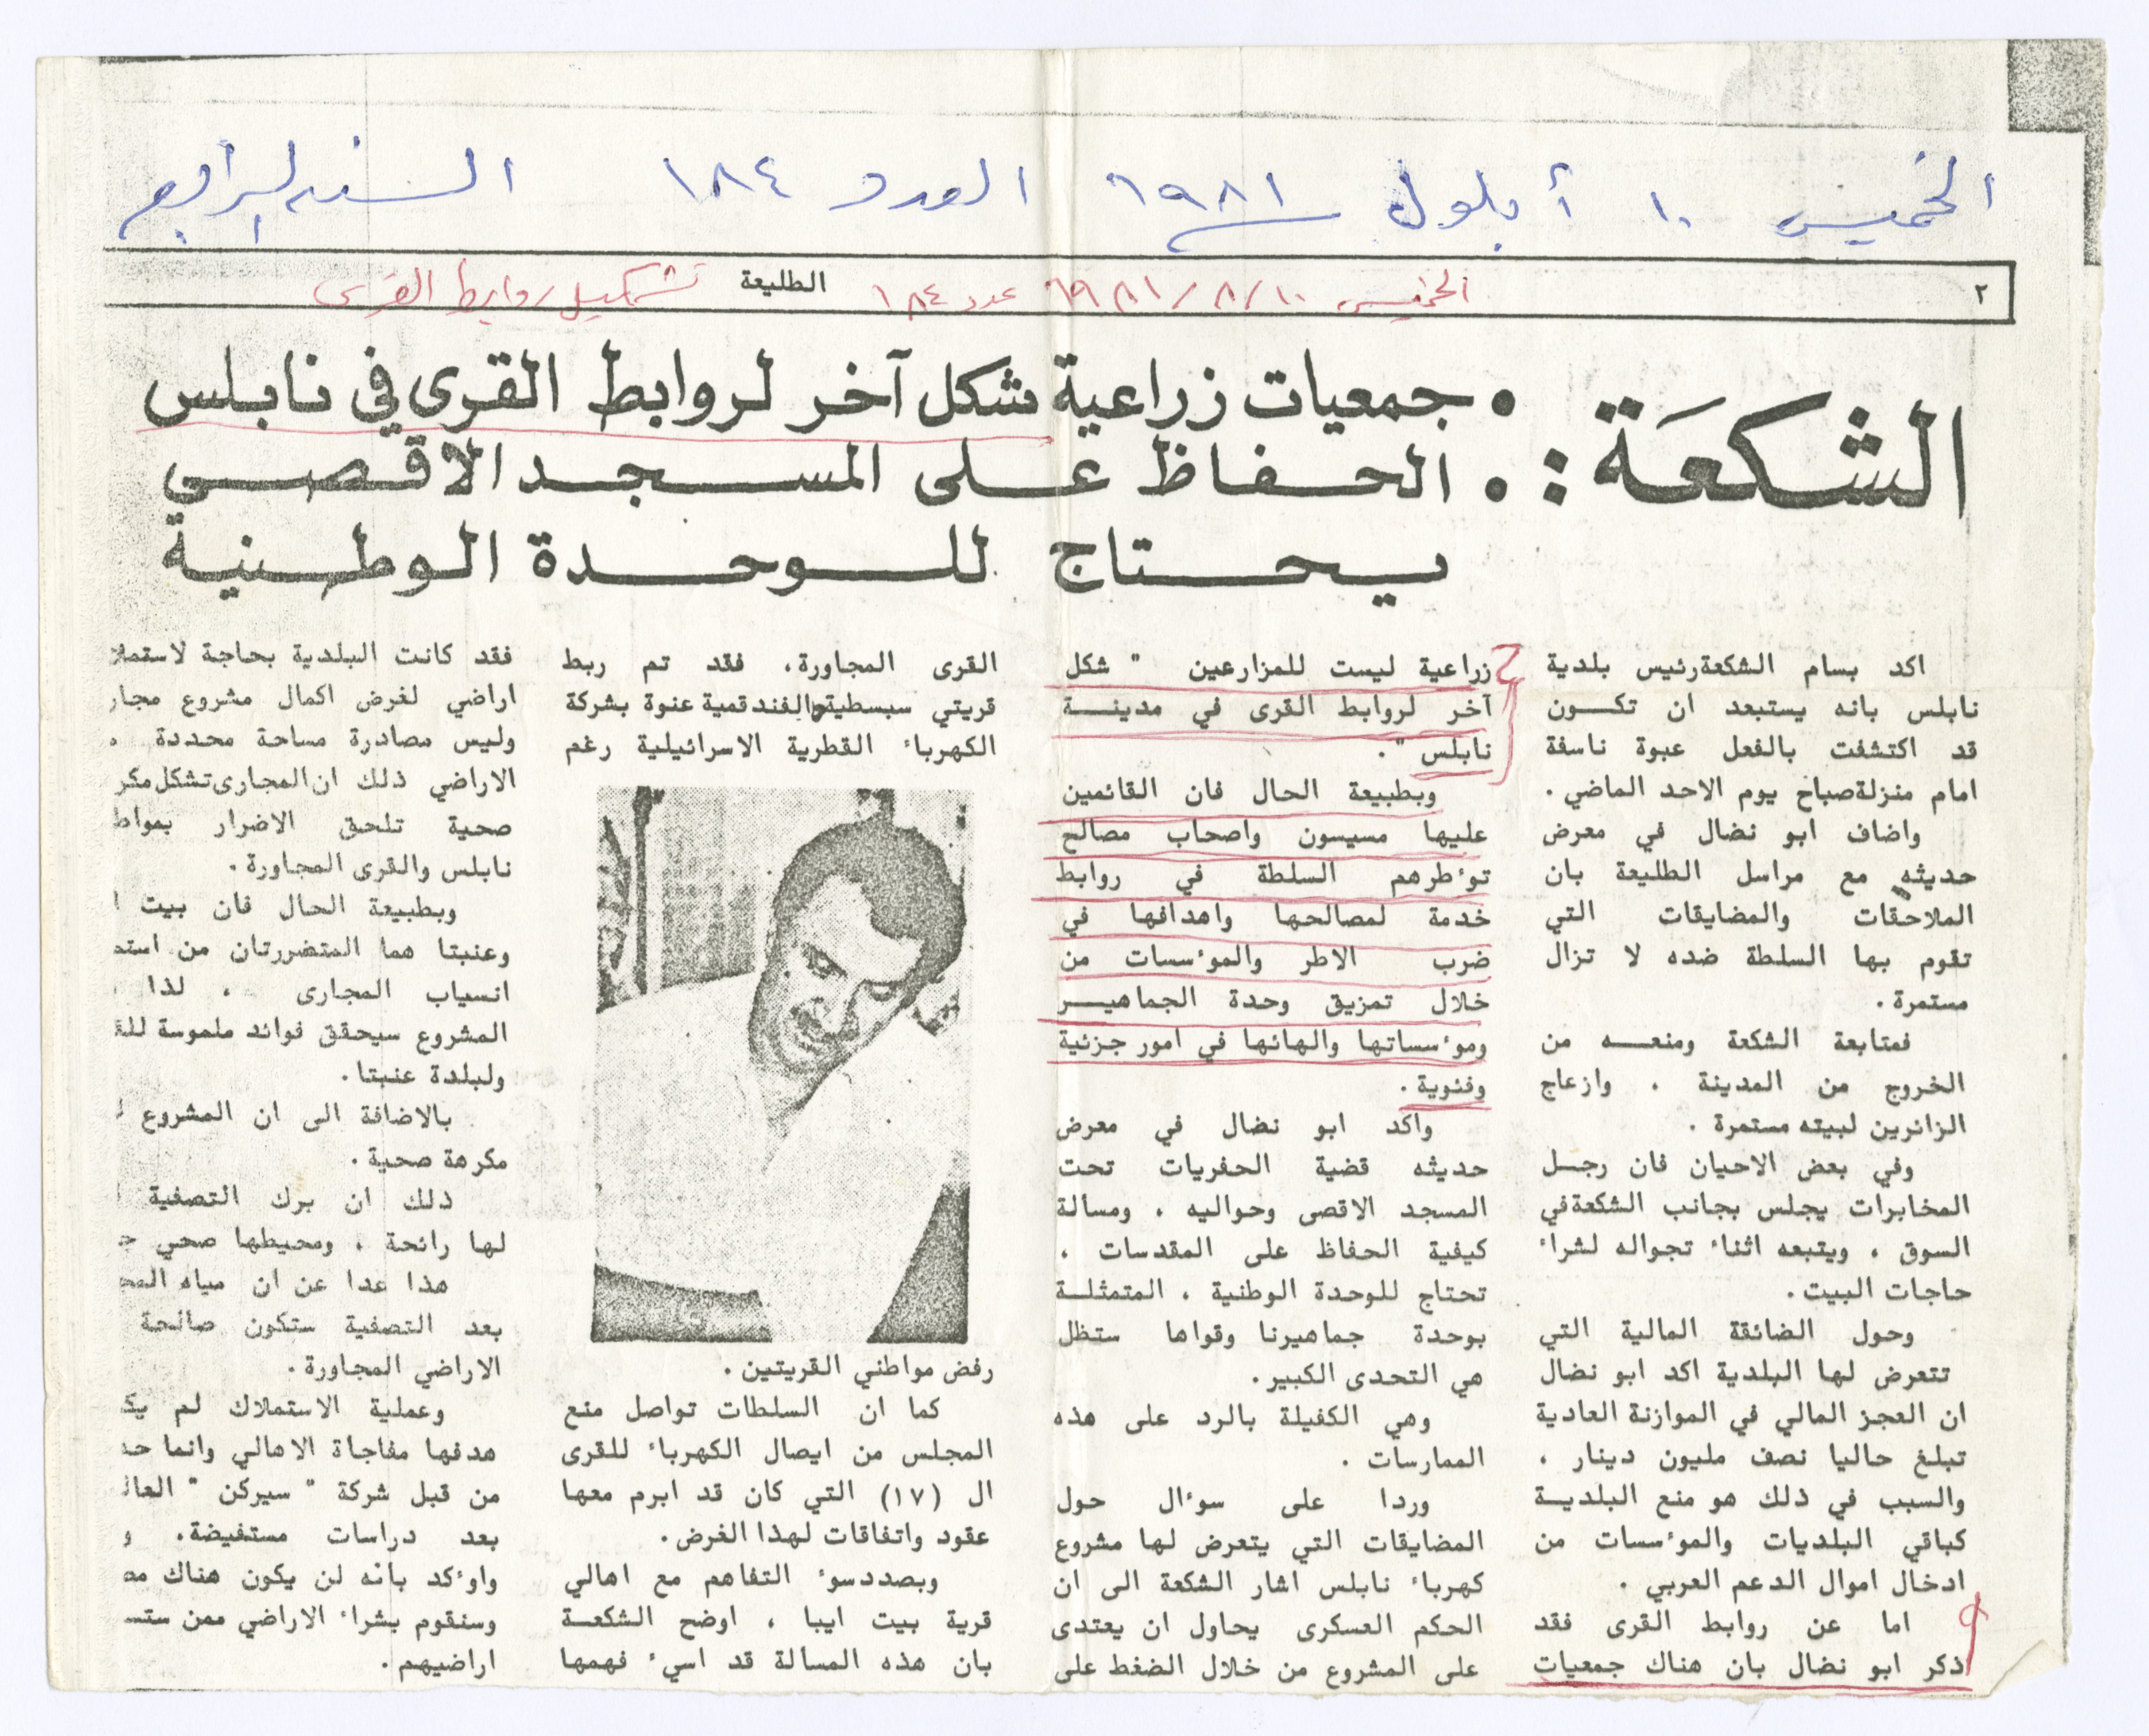 الخميس ١٠ أيلول ١٩٨١ العدد ١٨٤ السنة الرابعة
٢ الخميس ١٩٨١/٨/١٠ عدد ١٨٤ الطليعة تشكيل روابط القرى
الشكعَة :
• جمعيات زراعية شكل آخر لروابط القرى في نابلس
• الحفاظ على المسجد الاقصى
يحتاج للوحدة الوطنية
اكد بسام الشكعة رئيس بلدية
نابلس بانه يستبعد ان تكون
قد اكتشفت بالفعل عبوة ناسفة
امام منزلة صباح يوم الاحد الماضي .
واضاف ابو نضال في معرض
حديثه مع مراسل الطليعة بان
الملاحقات والمضايقات التي
تقوم بها السلطة ضده لا تزال
مستمرة .
فمتابعة الشكعة ومنعه من
الخروج من المدينة ، وازعاج
الزائرين لبيته مستمرة .
وفي بعض الاحيان فان رجل
المخابرات يجلس بجانب الشكعة في
السوق ، ويتبعه اثناء تجواله لشراء
حاجات البيت .
وحول الضائقة المالية التي
تتعرض لها البلدية اكد ابو نضال
ان العجز المالي في الموازنة العادية
تبلغ حاليا نصف مليون دينار ،
والسبب في ذلك هو منع البلدية
كباقي البلديات والموءسسات من
ادخال اموال الدعم العربي .
اما عن روابط القرى فقد
ذكر ابو نضال بان هناك جمعيات
زراعية ليست للمزارعين " شكل
آخر لروابط القرى في مدينة
نابلس " .
وبطبيعة الحال فان القائمين
عليها مسيسون واصحاب مصالح
توءطرهم السلطة في روابط
خدمة لمصالحها واهدافها في
ضرب الاطر والموءسسات من
خلال تمزيق وحدة الجماهير
وموءسساتها والهائها في امور جزئية
وفئوية .
واكد ابو نضال في معرض
حديثه قضية الحفريات تحت
المسجد الاقصى وحواليه ، ومسالة
كيفية الحفاظ على المقدسات ،
تحتاج للوحدة الوطنية ، المتمثلة
بوحدة جماهيرنا وقواها ستظل
هي التحدى الكبير .
وهي الكفيلة بالرد على هذه
الممارسات .
وردا على سوءال حول
المضايقات التي يتعرض لها مشروع
كهرباء نابلس اشار الشكعة الى ان
الحكم العسكرى يحاول ان يعتدى
على المشروع من خلال الضغط على
القرى المجاورة، فقد تم ربط
قريتي سبسطية والفندقمية عنوة بشركة
الكهرباء القطرية الاسرائيلية رغم
رفض مواطني القريتين .
كما ان السلطات تواصل منع
المجلس من ايصال الكهرباء للقرى
ال (١٧) التي كان قد ابرم معها
عقود واتفاقات لهذا الغرض .
وبصدد سوء التفاهم مع اهالي
قرية بيت ايبا ، اوضح الشكعة
بان هذه المسالة قد اسيء فهمها
فقد كانت البلدية بحاجة لاستملا
اراضي لغرض اكمال مشروع مجار
وليس مصادرة مساحة محددة
الاراضي ذلك ان المجارى تشكل مكر
صحية تلحق الاضرار بمواط
نابلس والقرى المجاورة .
وبطبيعة الحال فان بيت ا
وعنبتا هما المتضررتان من استم
انسياب المجارى ، لذا
المشروع سيحقق فوائد ملموسة للق
ولبلدة عنبتا .
بالاضافة الى ان المشروع
مكرهة صحية .
ذلك ان برك التصفية
لها رائحة ، ومحيطها صحي
هذا عدا عن ان مياه المج
بعد التصفية ستكون صالحة
الاراضي المجاورة .
وعملية الاستملاك لم يك
هدفها مفاجاة الاهالي وانما حد
من قبل شركة " سيركن " العال
بعد دراسات مستفيضة ، و
واوءكد بأنه لن يكون هناك مص
وسنقوم بشراء الاراضي ممن ستس
اراضيهم .